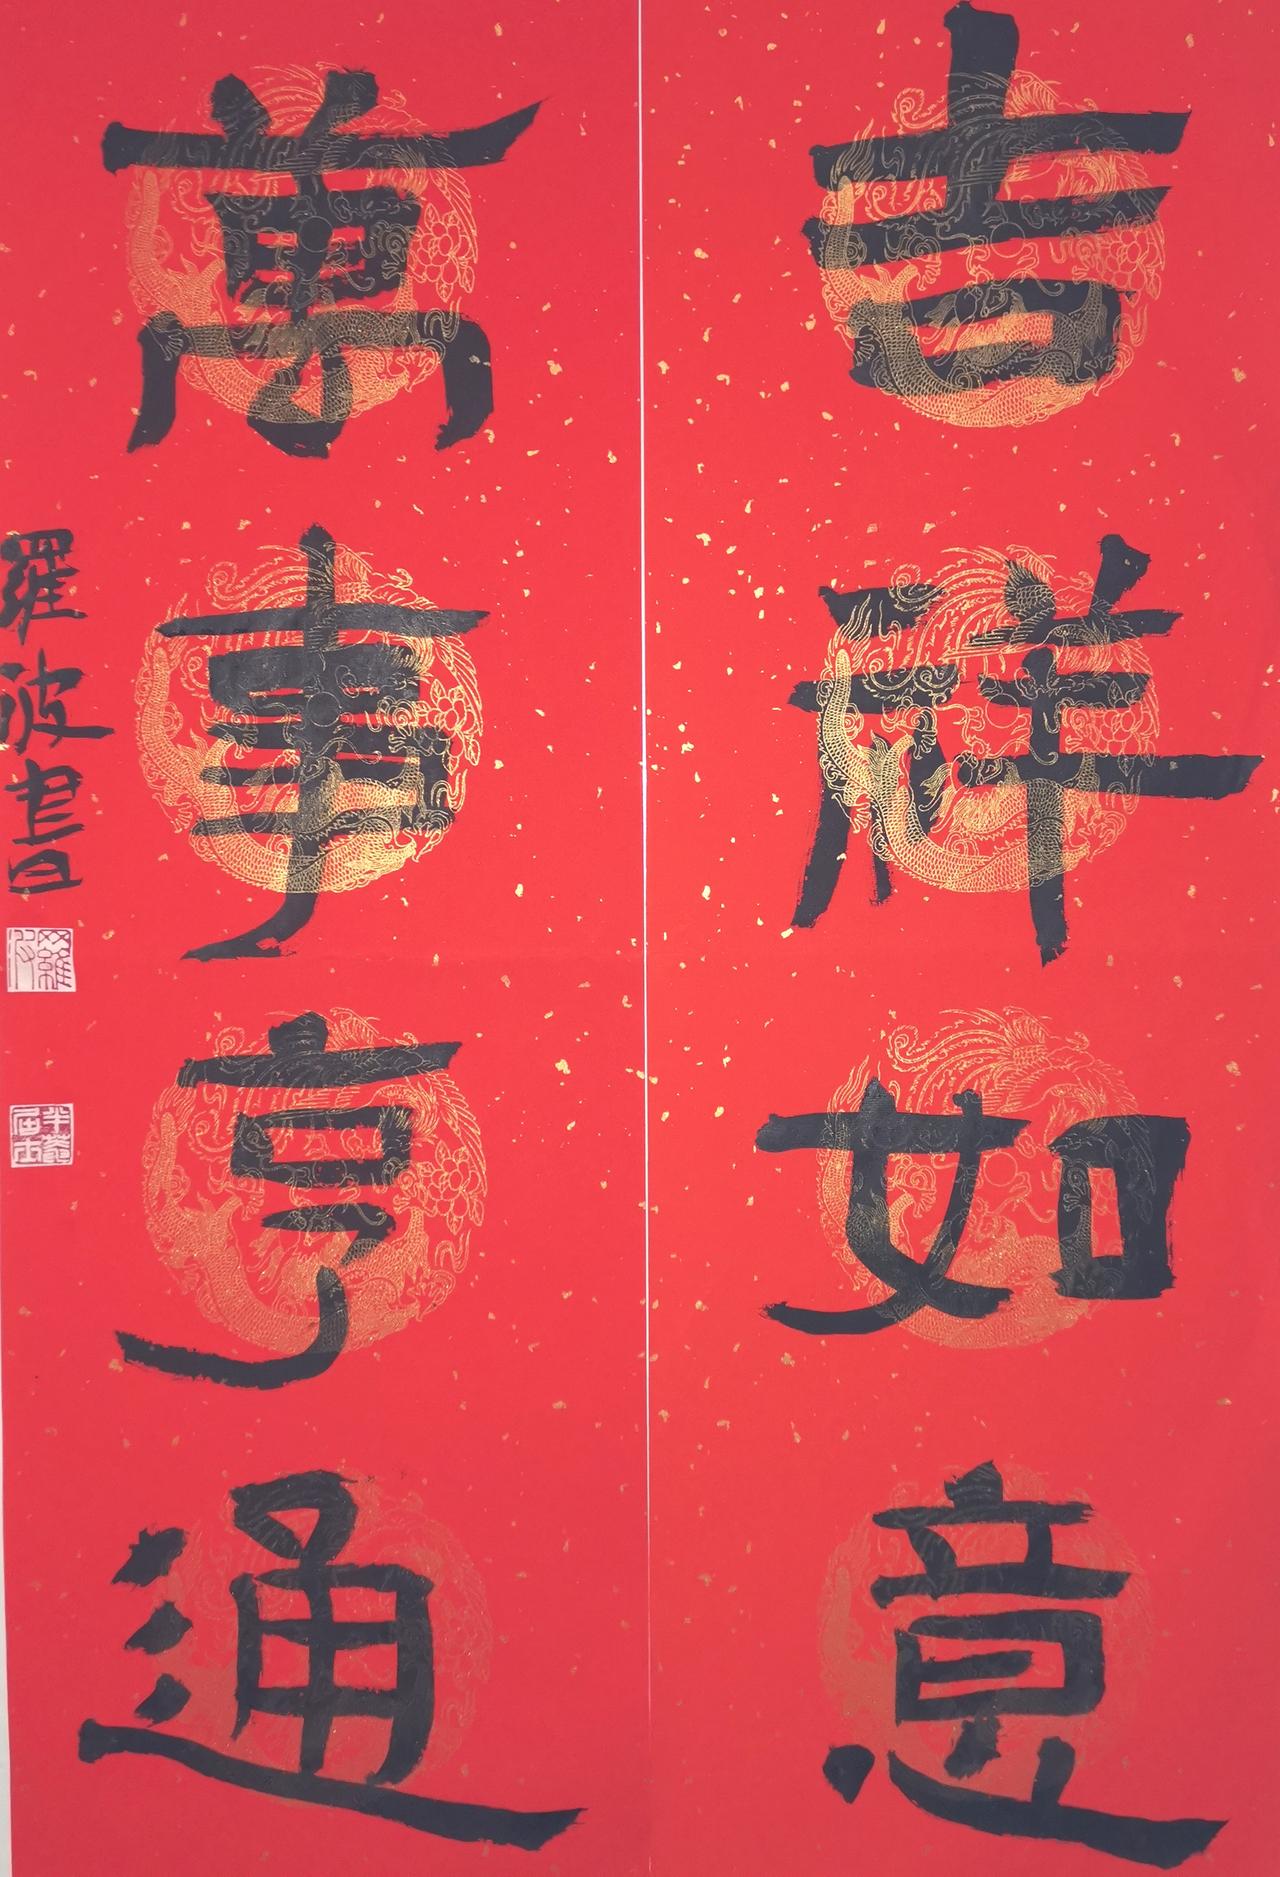 吉祥如意
萬事亨通
羅波書